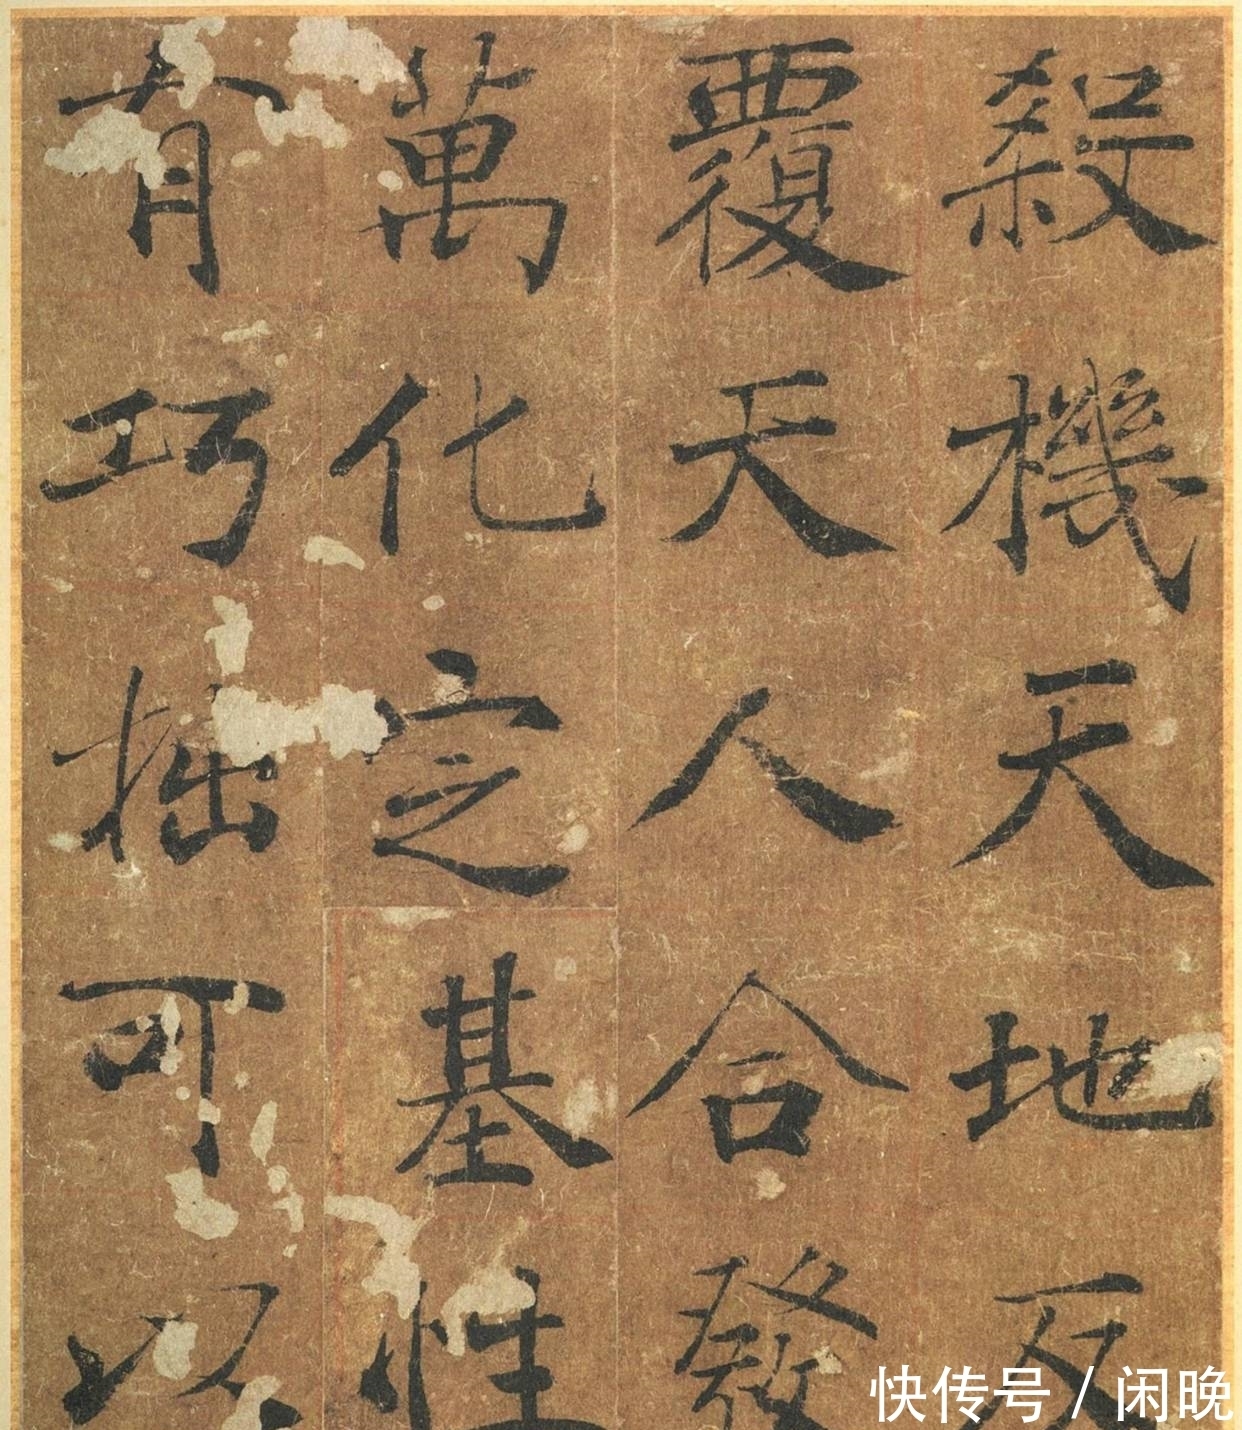 殺機天地反
覆天人合發
萬化之基性
有巧拙可以
快传号/闲晚